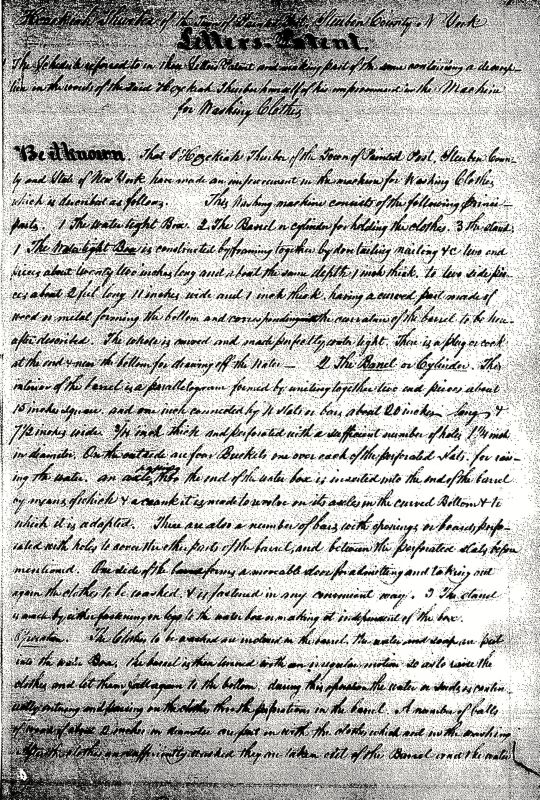 Hezekiah Thurber of the Town of Painted Post, Steuben County N York
Letters-Patent.
The Schedule referred to in these Letters Patent and making part of the same containing a descrip-
tion in the words of the said Hezekiah Thurber himself of his improvement in the Machine
for Washing Clothes
Be it known. That I Hezekiah Thurber of the Town of Painted Post, Steuben Coun-
ty and State of New York have made an improvement in the machine for Washing Clothes
which is described as follows. This washing machine consists of the following princi-
parts. 1 The water tight Box. 2 The Barrel or cylinder for holding the clothes. 3 The stand.
1 The Water tight Box is constructed by framing together by dovetailing nailing &c two end
pieces about twenty two inches long and about the same depth 1 inch thick. to two side pie-
ces about 2 feet long 11 inches wide and 1 inch thick, having a curved part made of
wood or metal forming the bottom and corresponding with the curvature of the barrel to be here-
after described. The whole is and made perfectly water tight. There is a plug or cock
at the end & near the bottom for drawing off the Water — 2 The Barrel or Cylinder. The
interior of the barrel is a parallelogram formed by uniting together two end pieces about
15 inches square, and one inch connected by 4 slats or bars, about 20 inches long &
7 1/2 inches wide 3/4 inch thick and perforated with a sufficient number of holes 1 1/4 inch
in diameter. On the outside are four Buckets one over each of the perforated slats. for rais-
ing the water. an axle thro the end of the water box is inserted into the end of the barrel
by means of which & a crank it is made to revolve on its axles in the curved Bottom & to
which it is adapted. There are also a number of bars with openings or boards perfo-
rated with holes to cover the other parts of the barrel, and between the perforated slats before
mentioned. One side of the forms a moveable door for admitting and taking out
again the clothes to be washed, & is fastened in any convenient way. 3 The stand
is made by either fastening on legs to the water box or making it independent of the box.
Operation. The Clothes to be washed are inclosed in the barrel. the water and soap are put
into the water Box. the barrel is then turned with an irregular motion so as to raise the
clothes and let them fall again to the bottom. during this operation the water or suds is contin-
ually entering and pouring on the clothes thro the perforations in the barrel. A number of balls
of wood of about 2 inches in diameter are put in with the clothes which aid in the washing
After the clothes are sufficiently washed they are taken out of the Barrel and the water